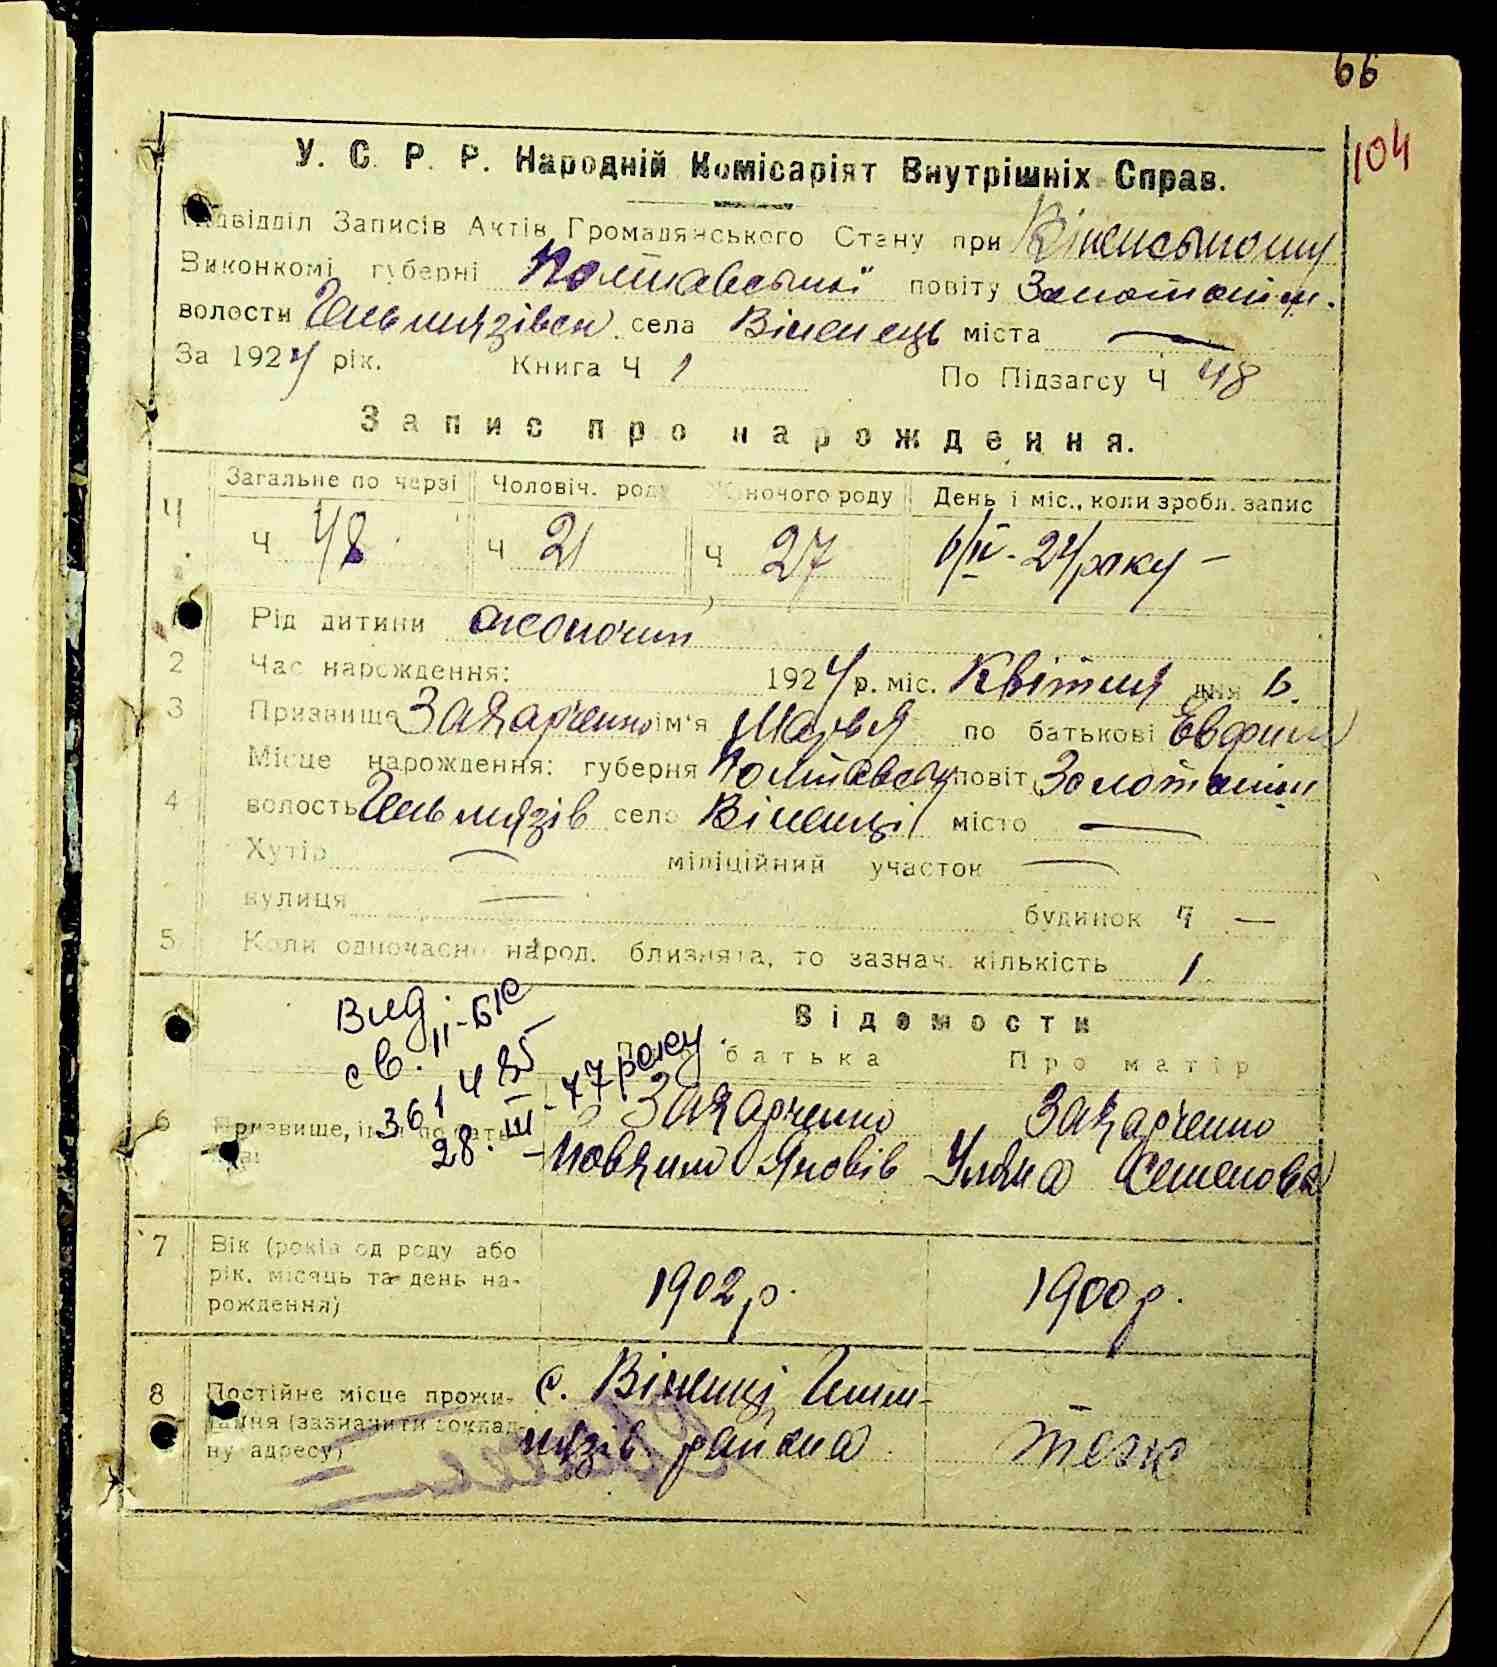 66
104
У. С. Р. Р. Народній Комісаріят Внутрішніх Справ.
Підвідділ Записів Актів Громадянського Стану при
Виконкомі губерні Полтавської повіту Золотоніш.
волости Гельмязівск села Віненець міста —
За 1924 рік. Книга Ч 1 По Підзагсу Ч 48
Запис про нарождення.
Ч Загальне по черзі Чоловіч. роду Жіночого роду День і міс., коли зробл. запис
Ч 48 Ч 21 Ч 27 6/IV - 24 року —
1 Рід дитини жіночий
2 Час нарождення: 1924 р. міс. Квітня дня 6.
3 Призвище Захарченко ім'я Марья по батькові Евфим
Місце нарождення: губерня Полтавськ повіт Золотоніш
4 волость Гельмязів село Віненці місто —
Хутір — міліційний участок —
вулиця — будинок Ч —
5 Коли одночасно народ. близнята, то зазнач. кількість 1
Вид.
св. II-БК
361485
28. III - 77 року.
Відомости
Про батька Про матір
6 Призвище, ім'я по бать-
Захарченко Захарченко
Яковів Уляна Семенова
7 Вік (років од роду або
рік, місяць та день на-
рождення)
1902 р. 1900 р.
8 Постійне місце прожи-
вання (зазначити доклад-
ну адресу)
с. Віненці Гельм-
язів. района
теж